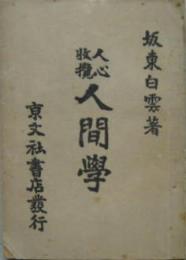 坂東白雲著
人心收攬
人間學
京文社書店發行